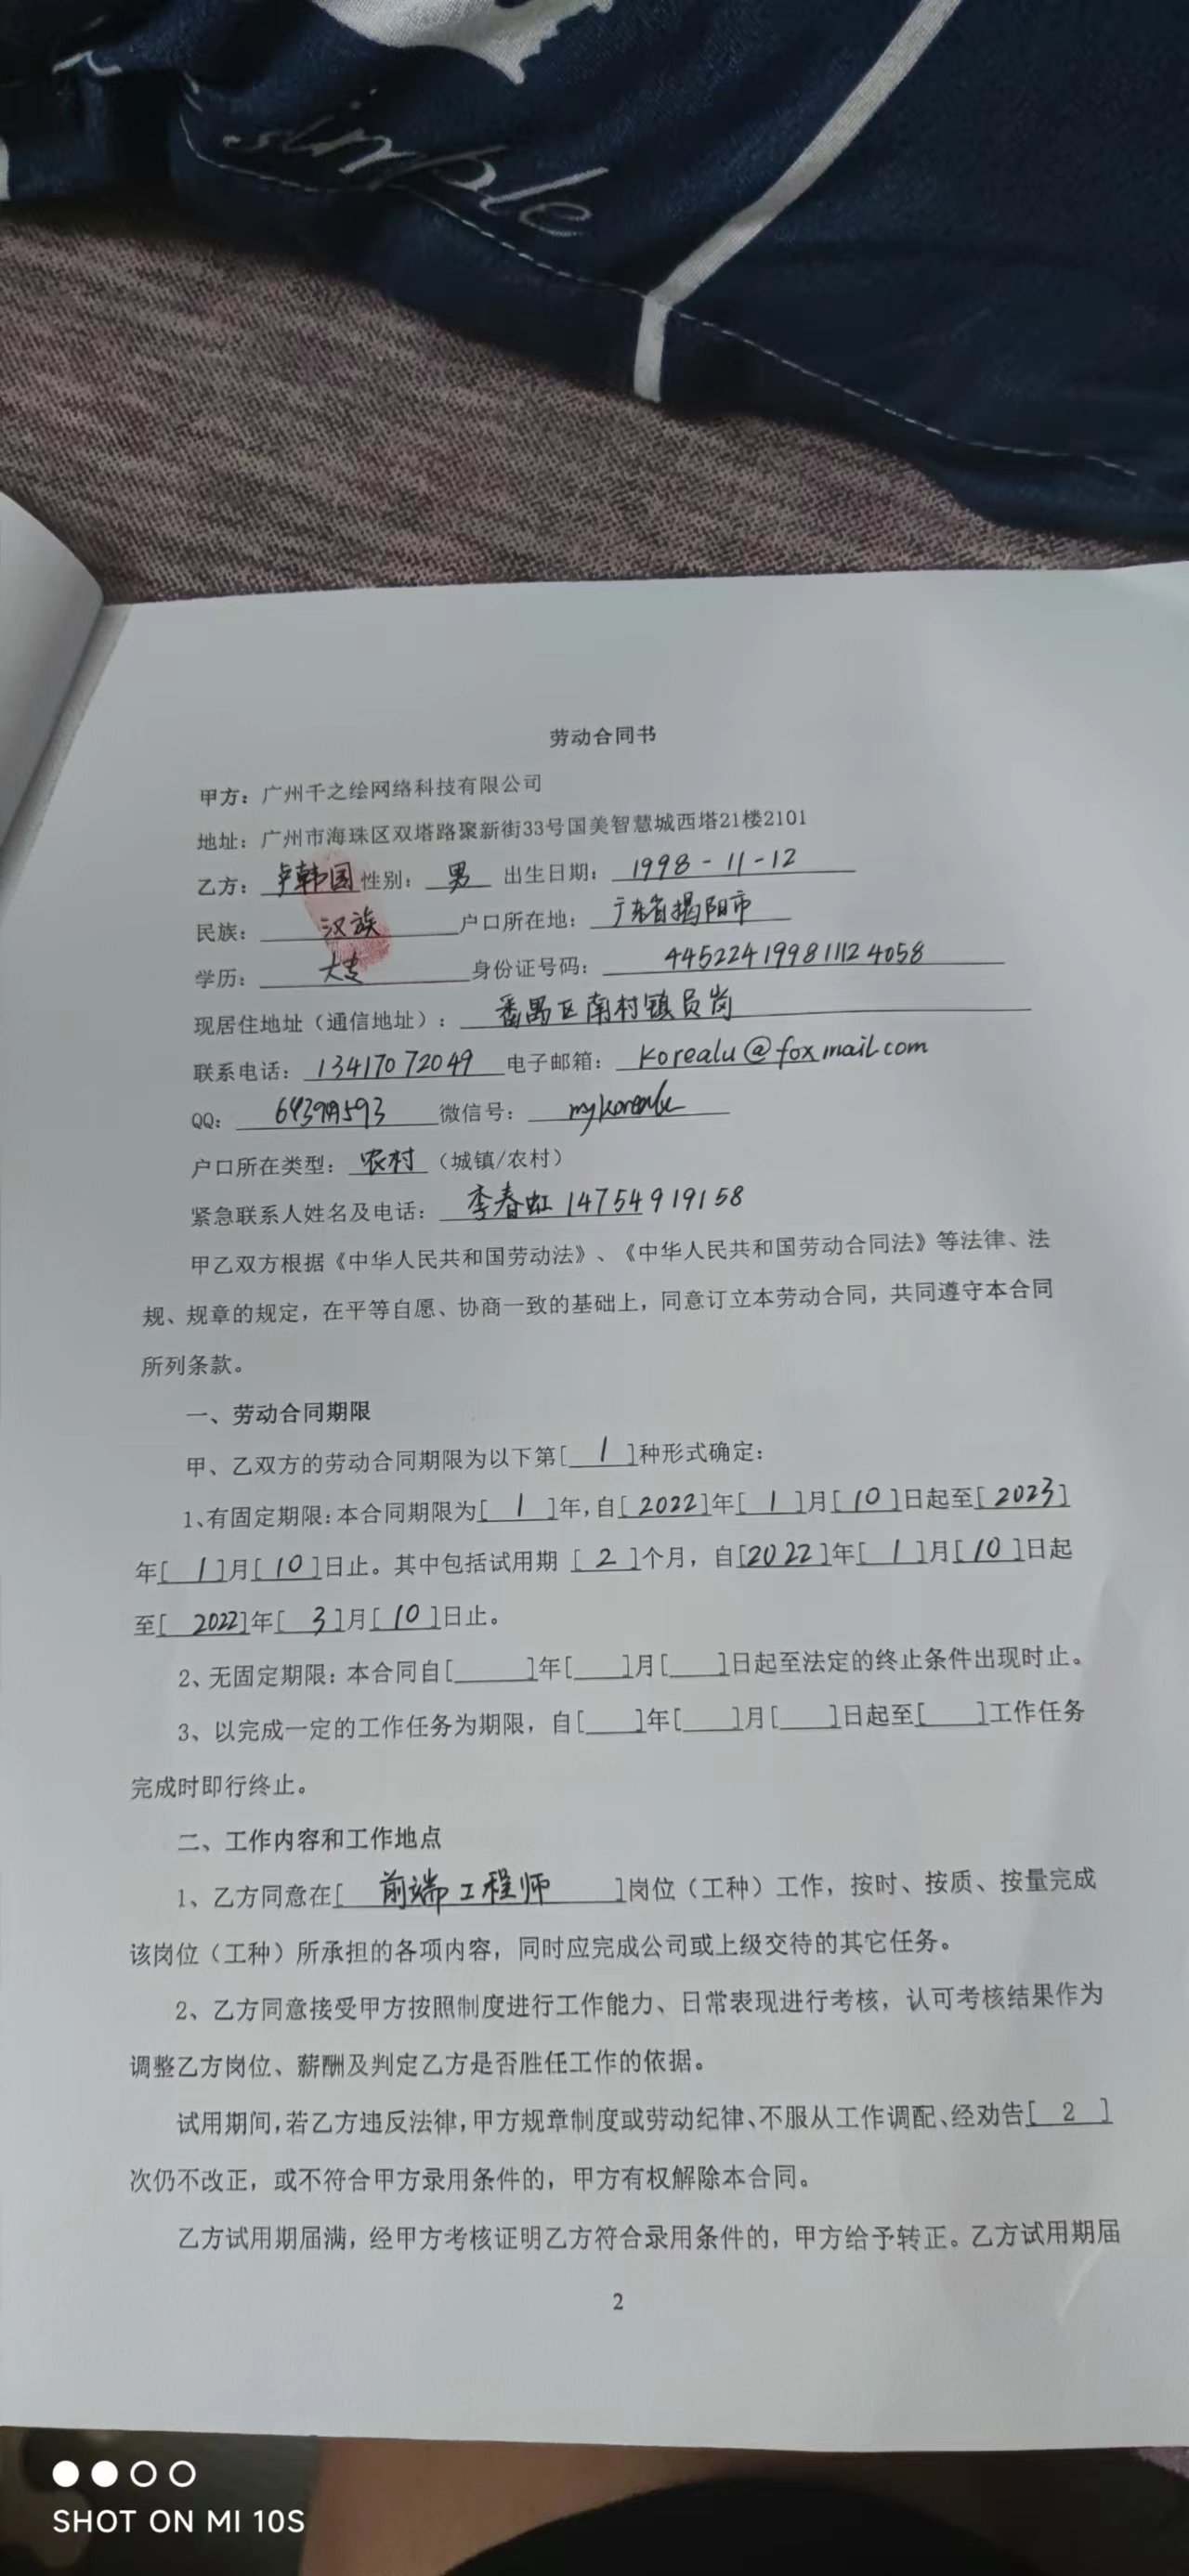 simple
劳动合同书
甲方：广州千之绘网络科技有限公司
地址：广州市海珠区双塔路聚新街33号国美智慧城西塔21楼2101
乙方：卢韩国 性别：男 出生日期：1998-11-12
民族：汉族 户口所在地：广东省揭阳市
学历：大专 身份证号码：445224199811124058
现居住地址（通信地址）：番禺区南村镇员岗
联系电话：13417072049 电子邮箱：korealu@foxmail.com
QQ： 微信号：mykorealu
户口所在类型：农村（城镇/农村）
紧急联系人姓名及电话：李春虹 14754919158
甲乙双方根据《中华人民共和国劳动法》、《中华人民共和国劳动合同法》等法律、法
规、规章的规定，在平等自愿、协商一致的基础上，同意订立本劳动合同，共同遵守本合同
所列条款。
一、劳动合同期限
甲、乙双方的劳动合同期限为以下第[ 1 ]种形式确定：
1、有固定期限：本合同期限为[ 1 ]年，自[ 2022 ]年[ 1 ]月[ 10 ]日起至[ 2023 ]
年[ 1 ]月[ 10 ]日止。其中包括试用期 [ 2 ]个月，自[2022]年[ 1 ]月[ 10 ]日起
至[ 2022]年[ 3 ]月[ 10 ]日止。
2、无固定期限：本合同自[____]年[___]月[___]日起至法定的终止条件出现时止。
3、以完成一定的工作任务为期限，自[___]年[___]月[___]日起至[___]工作任务
完成时即行终止。
二、工作内容和工作地点
1、乙方同意在[ 前端工程师 ]岗位（工种）工作，按时、按质、按量完成
该岗位（工种）所承担的各项内容，同时应完成公司或上级交待的其它任务。
2、乙方同意接受甲方按照制度进行工作能力、日常表现进行考核，认可考核结果作为
调整乙方岗位、薪酬及判定乙方是否胜任工作的依据。
试用期间，若乙方违反法律，甲方规章制度或劳动纪律、不服从工作调配、经劝告[ 2 ]
次仍不改正，或不符合甲方录用条件的，甲方有权解除本合同。
乙方试用期届满，经甲方考核证明乙方符合录用条件的，甲方给予转正。乙方试用期届
2
SHOT ON MI 10S